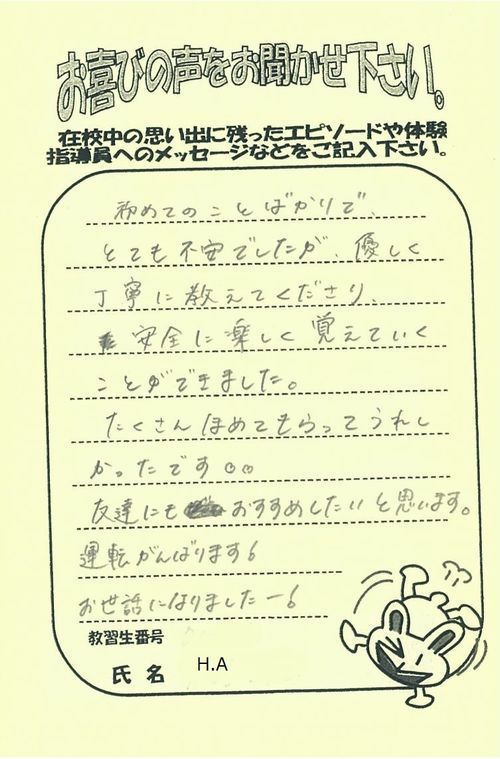 お喜びの声をお聞かせ下さい。
在校中の思い出に残ったエピソードや体験
指導員へのメッセージなどをご記入下さい。
初めてのことばかりで、
とても不安でしたが、優しく
丁寧に教えてくださり、
安全に楽しく覚えていく
ことができました。
たくさんほめてもらってうれし
かったです。。
友達にもおすすめしたいと思います。
運転がんばります!
お世話になりましたー!
教習生番号
氏名 H.A